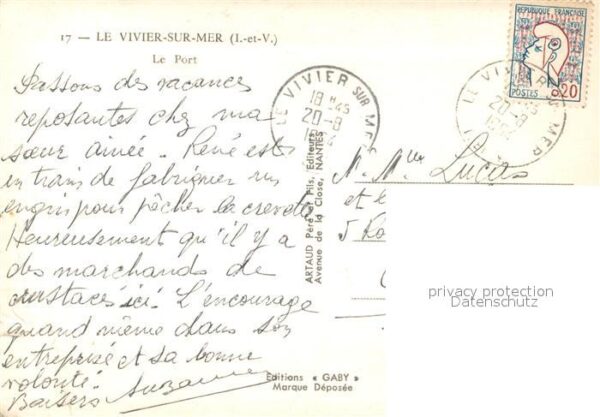 17 — LE VIVIER-SUR-MER (I.-et-V.)
Le Port
Passons des vacances
reposantes chez ma
sœur aimée. René est
en train de fabriquer un
engin pour pêcher la crevette
Heureusement qu'il y a
des marchands de
crustacés ici. L'encourage
quand même dans son
entreprise et sa bonne
volonté.
Baisers Suzanne
ARTAUD Père et Fils, Editeurs
Avenue de la Close, NANTES
Editions « GABY »
Marque Déposée
REPUBLIQUE FRANCAISE
POSTES 0,20
LE VIVIER SUR MER
18 H 45
20-8
LE VIVIER SUR MER
20-8
M. Mme Lucas
et
5
privacy protection
Datenschutz